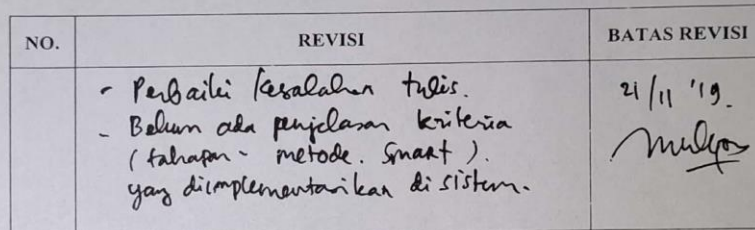 NO.
REVISI
BATAS REVISI
- Perbaiki kesalahan tulis.
- Belum ada penjelasan kriteria
(tahapan - metode. Smart).
yang diimplementasikan di sistem.
21/11 '19.